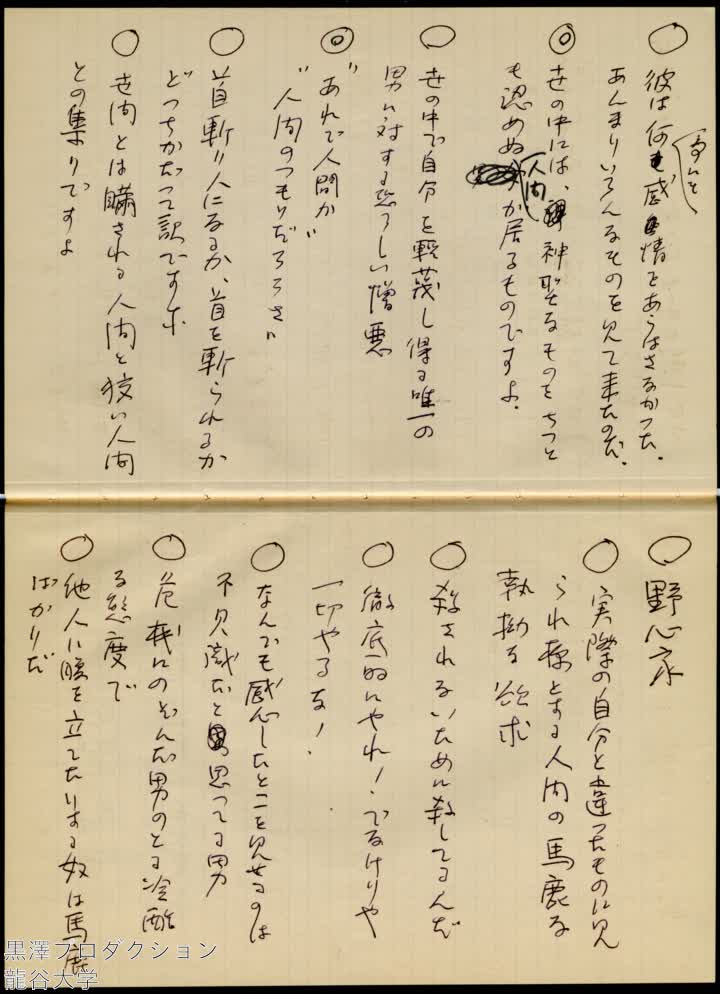 ○ 彼は何も感情をあらはさなかつた。
あんまりいろんなものを見て来たのだ。
◎ 世の中には、神聖なものをちつと
も認めぬ人間が居るものですよ。
○ 世の中で自分を軽蔑し得る唯一の
男に対する恐ろしい憎悪
◎ "あれで人間か"
"人間のつもりだろうさ"
○ 首斬り人になるか、首を斬られるか
どつちかだつて訳ですな
○ 世間とは瞞される人間と狡い人間
との集りですよ
○ 野心家
○ 実際の自分と違つたものに見
られ様とする人間の馬鹿な
執拗な欲求
○ 殺されないために殺してるんだ
○ 徹底的にやれ!でなけりや
一切やるな!
○ なんでも感心したとこを見せるのは
不見識だと思つてる男
○ 危機にのぞんだ男のとる冷酷
な態度で
○ 他人に腹を立てたりする奴は馬鹿
ばかりだ
黒澤プロダクション
龍谷大学